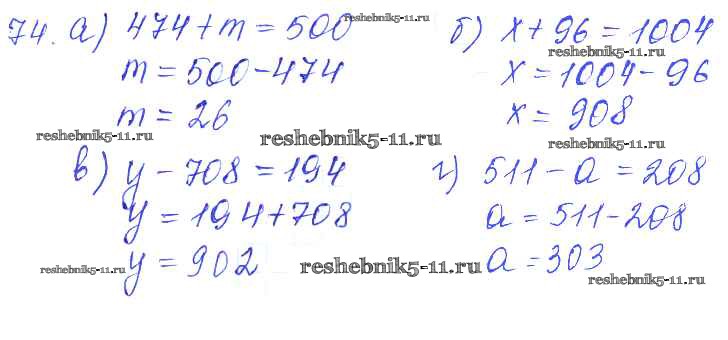 74. а) 474 + m = 500
m = 500 - 474
m = 26
б) x + 96 = 1004
x = 1004 - 96
x = 908
в) y - 708 = 194
y = 194 + 708
y = 902
г) 511 - a = 208
a = 511 - 208
a = 303
reshebnik5-11.ru
reshebnik5-11.ru
reshebnik5-11.ru
reshebnik5-11.ru
reshebnik5-11.ru
reshebnik5-11.ru
reshebnik5-11.ru
reshebnik5-11.ru